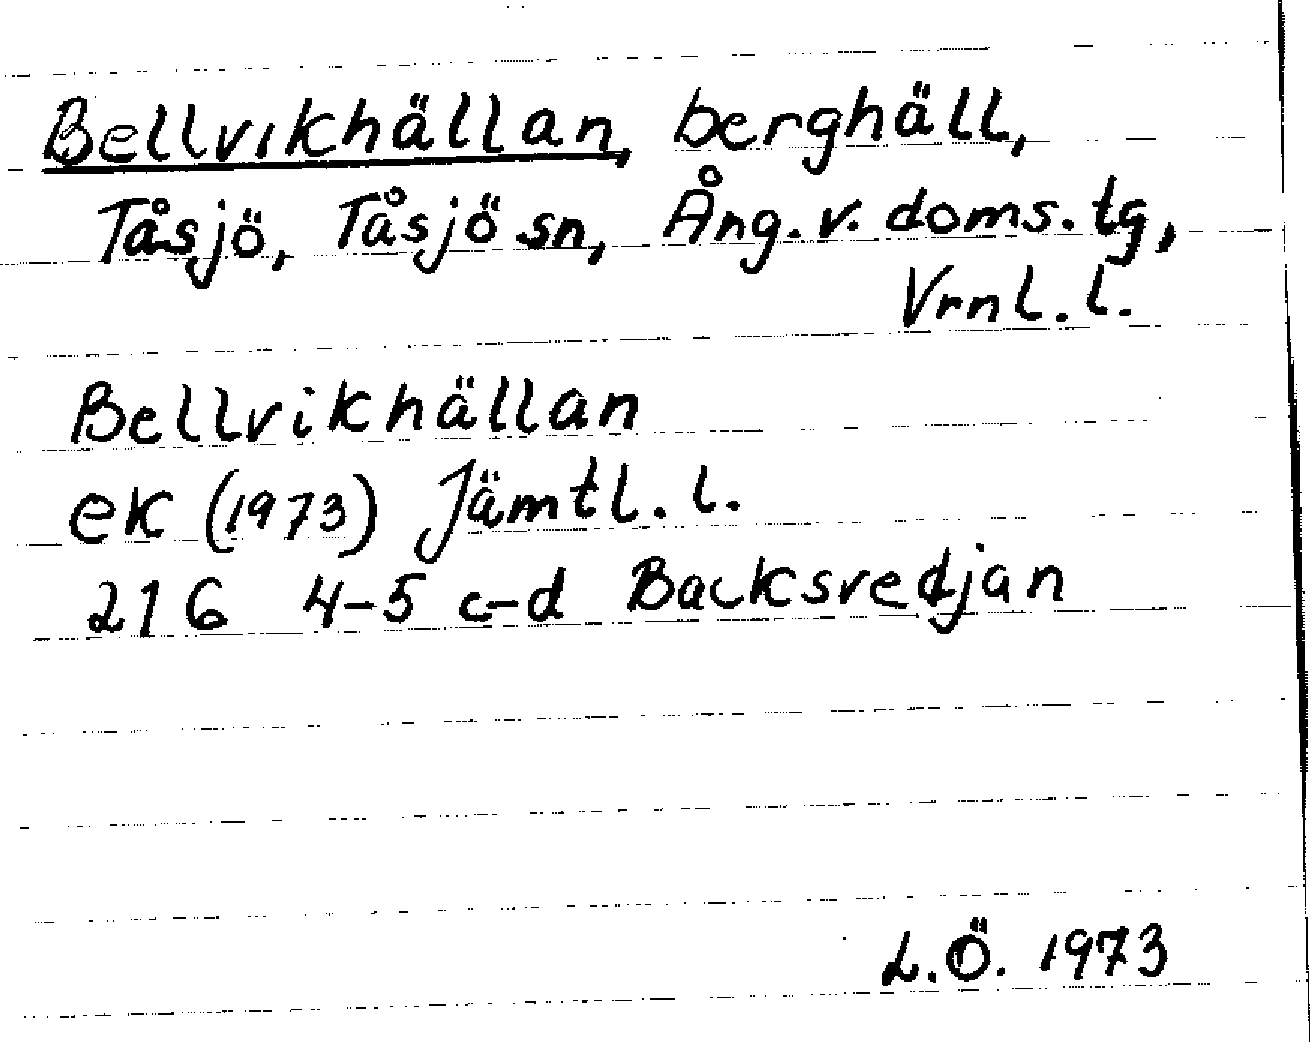 Bellvikhällan, berghäll,
Tåsjö, Tåsjö sn, Ång. v. doms. tg,
Vrnl. l.
Bellvikhällan
ek (1973) Jämtl. l.
216 4-5 c-d Backsvedjan
L.Ö. 1973